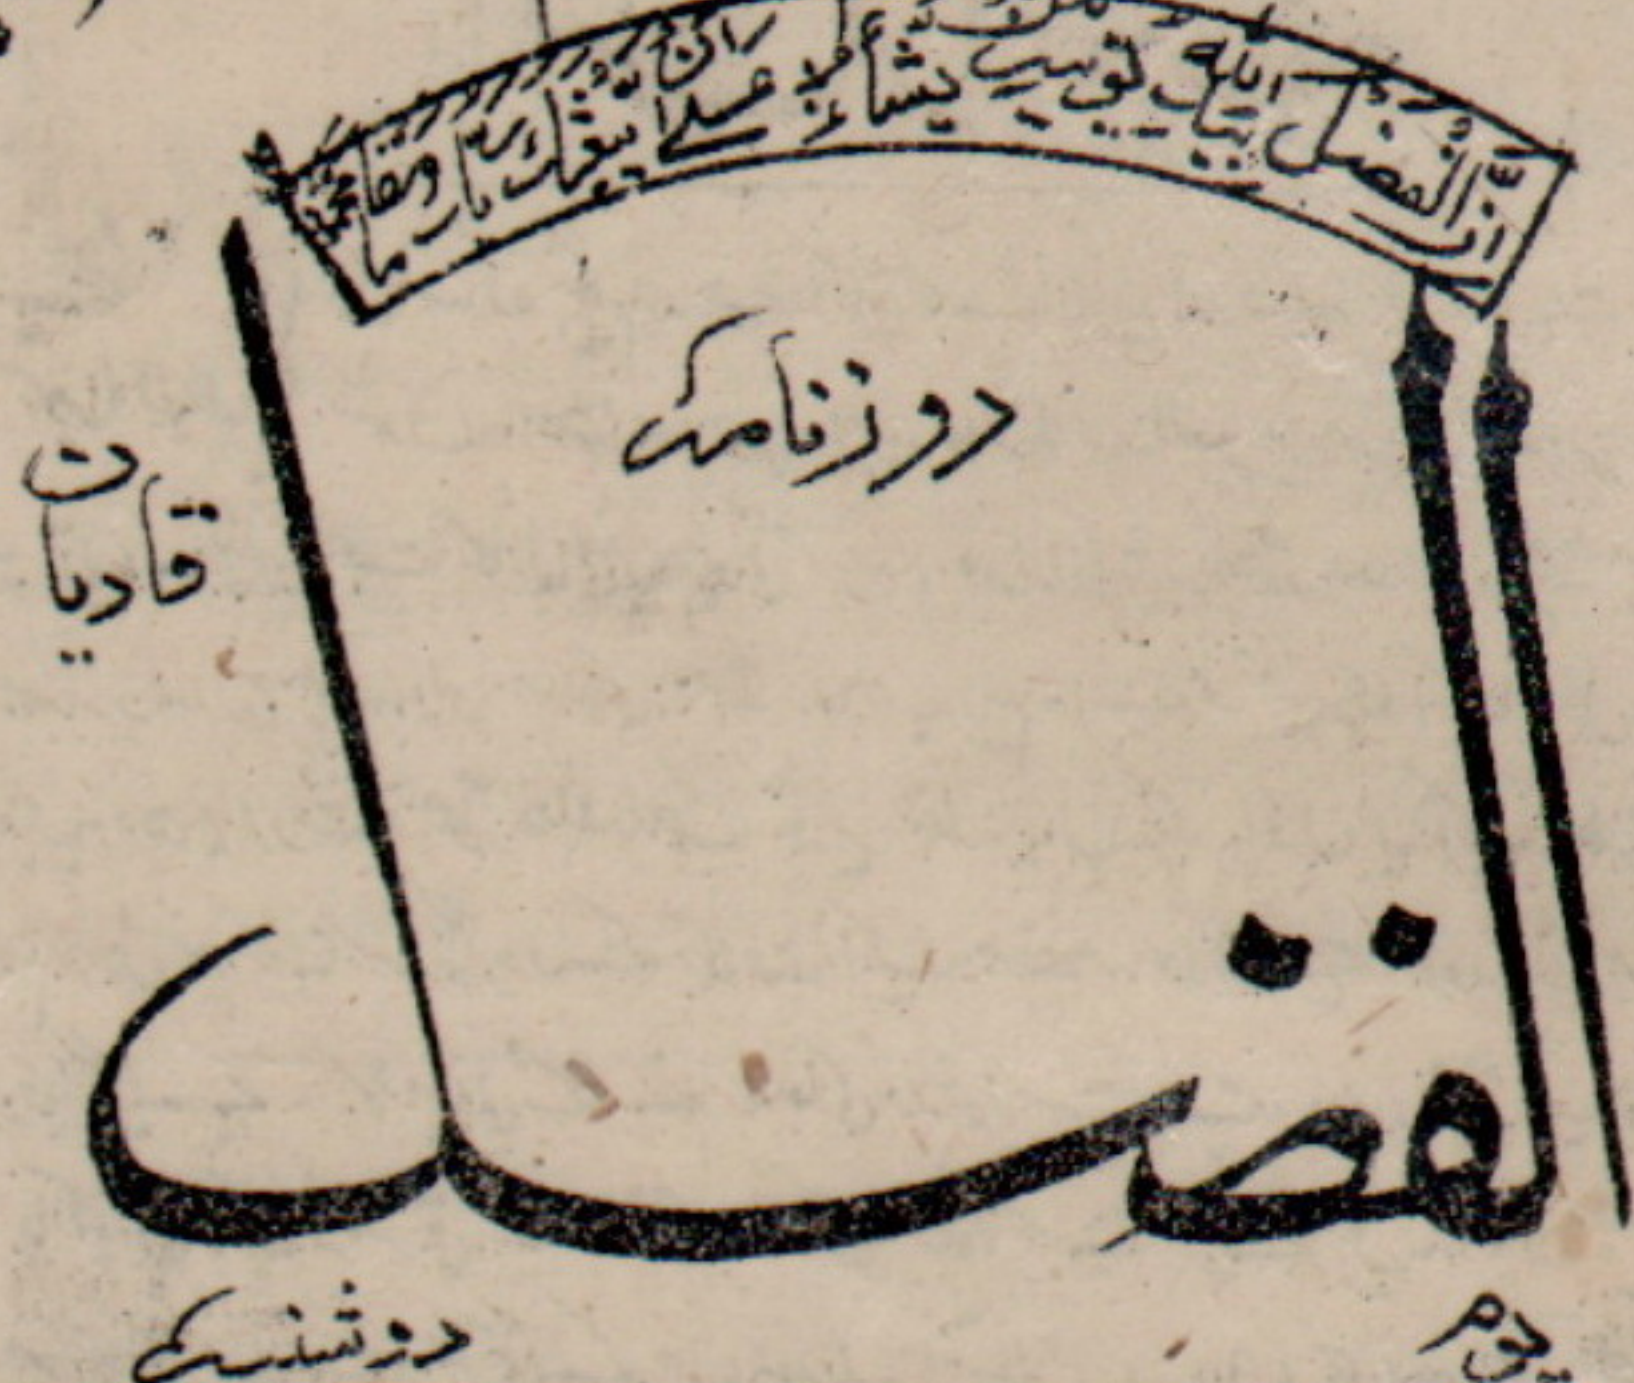 ان الفضل بيد الله يؤتيه من يشاء عسى ان يبعثك ربك مقاما محمودا
روزنامہ
قادیان
الفضل
یوم
دوشنبہ